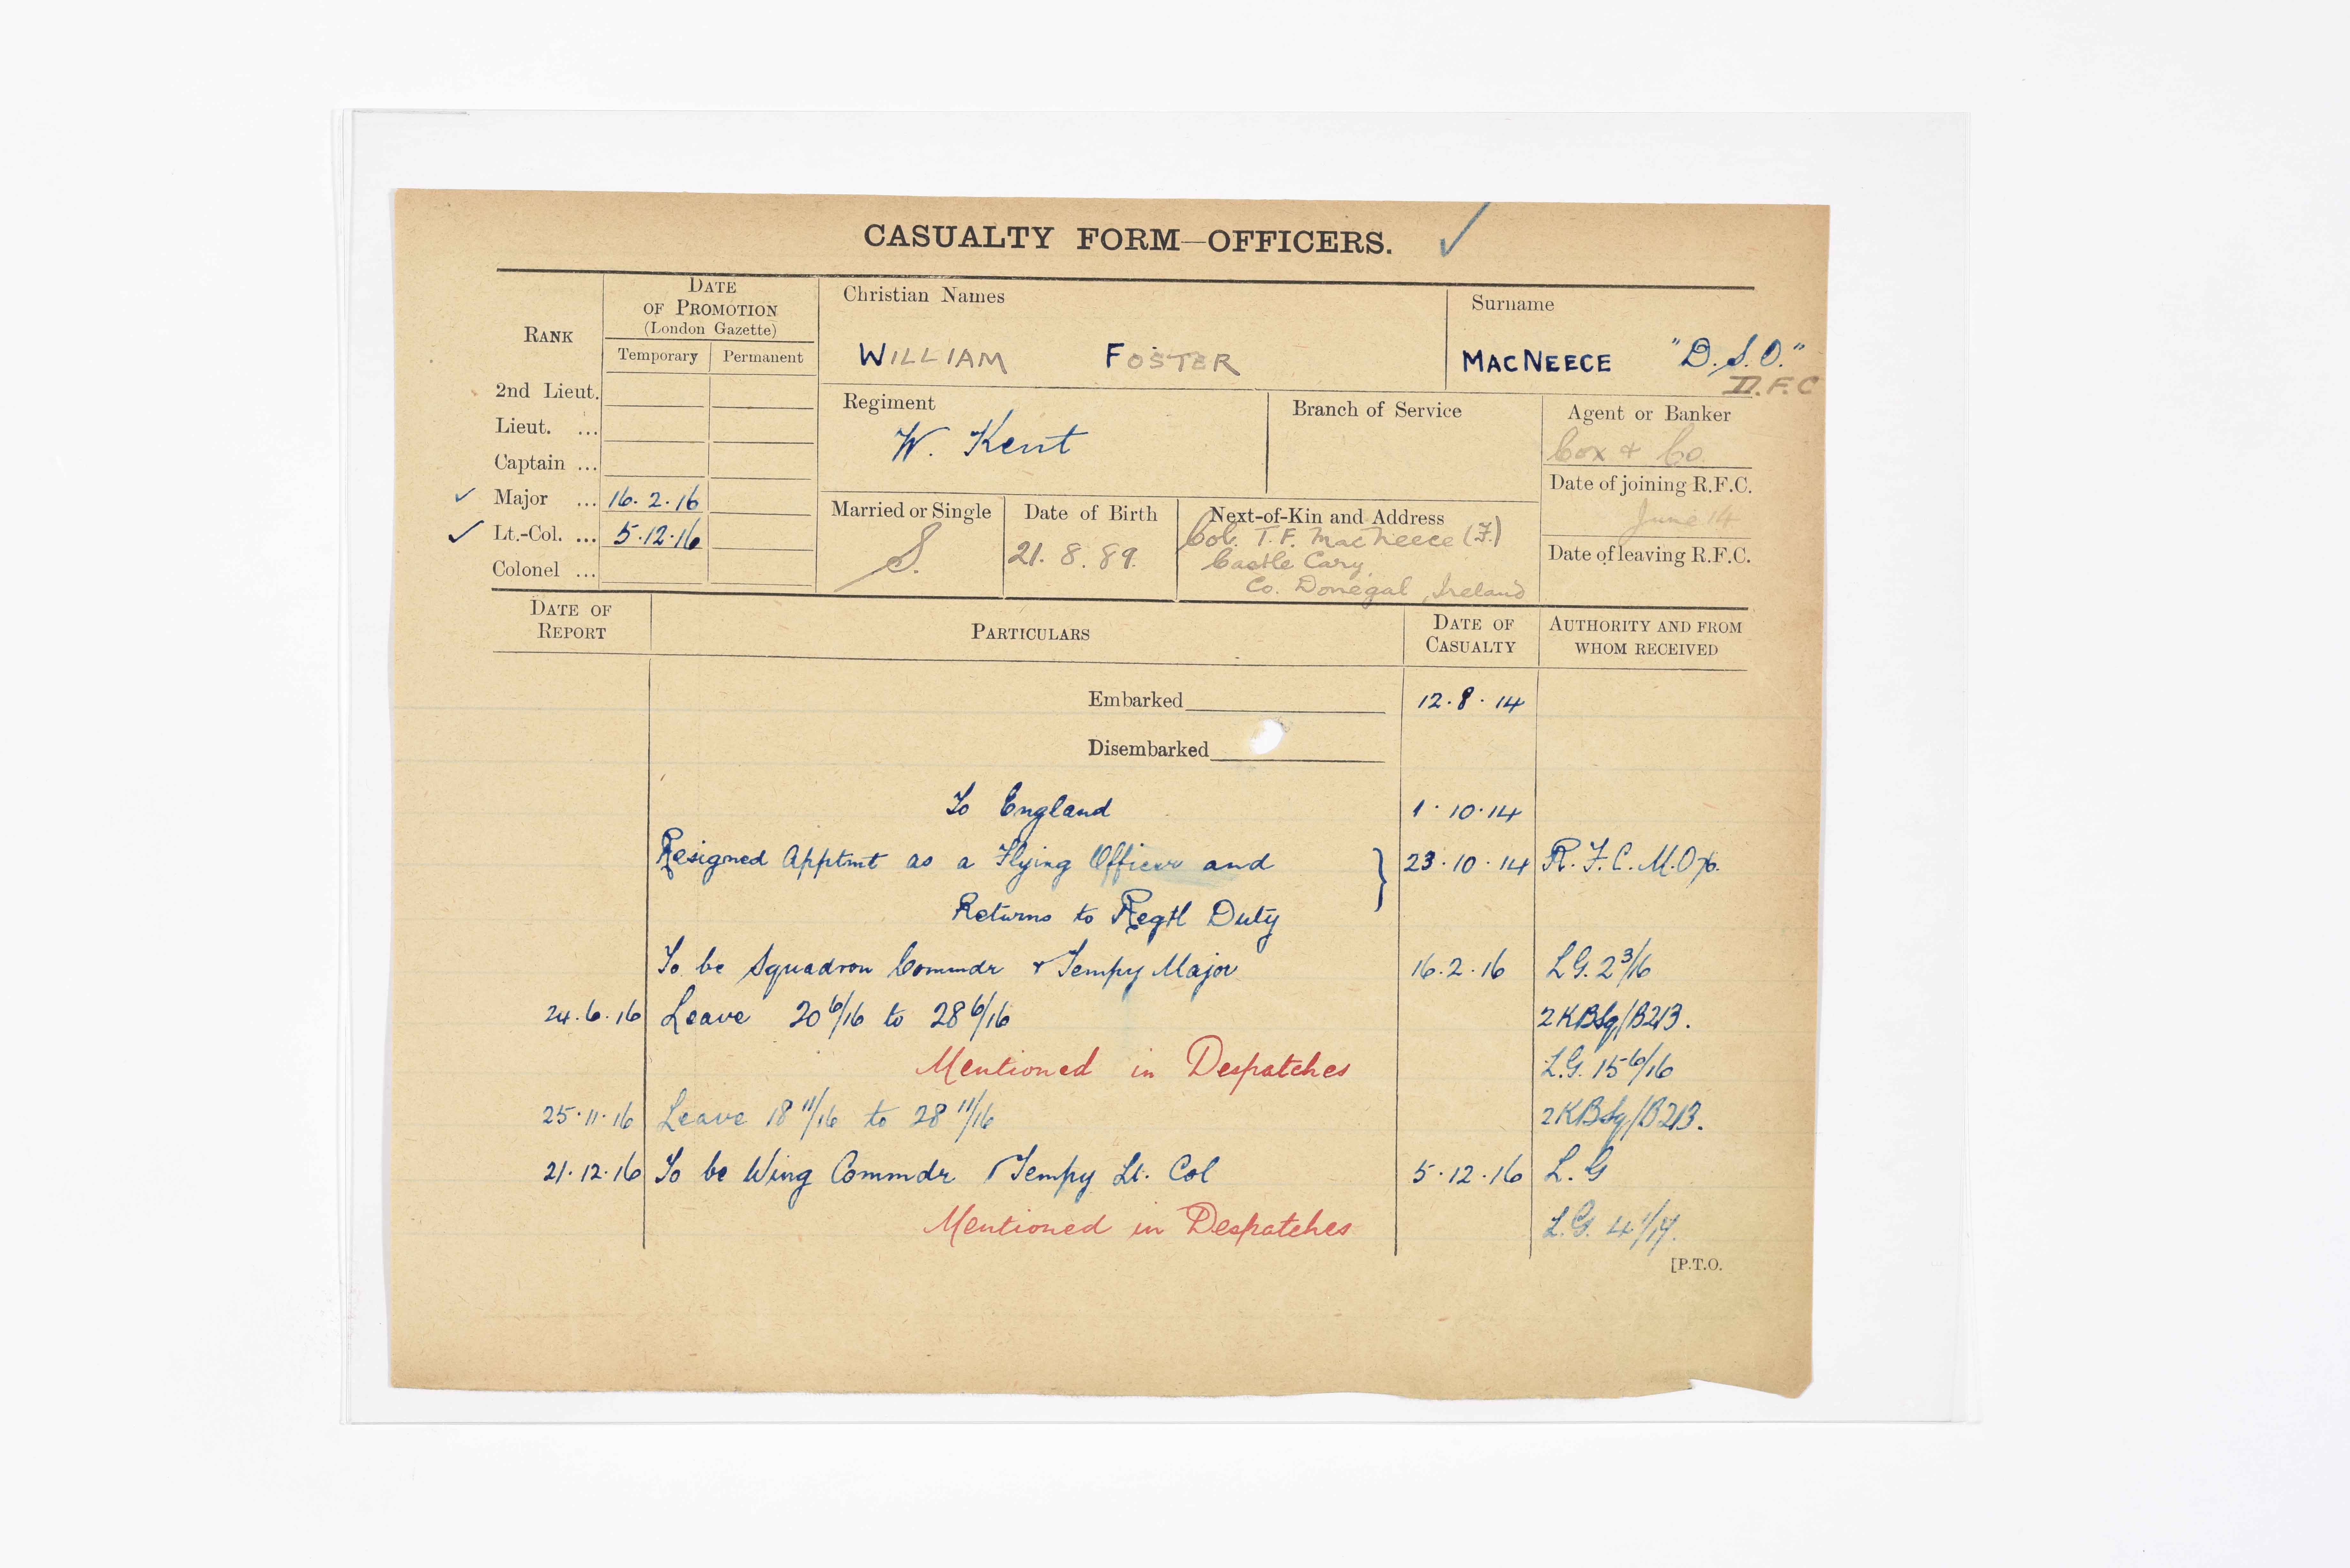 CASUALTY FORM—OFFICERS. ✓
RANK
DATE OF PROMOTION (London Gazette)
Temporary Permanent
2nd Lieut.
Lieut. ...
Captain ...
✓ Major ... 16. 2. 16
✓ Lt.-Col. ... 5.12.16
Colonel ...
Christian Names
WILLIAM FOSTER
Surname
MACNEECE "D.S.O."
D.F.C
Regiment
W. Kent
Branch of Service
Agent or Banker
Cox & Co.
Date of joining R.F.C.
June 14
Date of leaving R.F.C.
Married or Single
S.
Date of Birth
21. 8. 89.
Next-of-Kin and Address
Col. T. F. MacNeece (F.)
Castle Cary,
Co. Donegal, Ireland
DATE OF REPORT
PARTICULARS
DATE OF CASUALTY
AUTHORITY AND FROM WHOM RECEIVED
Embarked 12.8.14
Disembarked
To England 1.10.14
Resigned Apptmt as a Flying Officer and } 23.10.14 R.F.C. M.O
Returns to Regtl Duty
To be Squadron Commdr & Tempy Major 16.2.16 L.G. 2 3/16
24.6.16 Leave 20 6/16 to 28 6/16 2KBSq/B213.
Mentioned in Despatches L.G. 15 6/16
25.11.16 Leave 18 11/16 to 28 11/16 2KBSq/B213.
21.12.16 To be Wing Commdr & Tempy Lt. Col 5.12.16 L.G
Mentioned in Despatches L.G. 4 1/17.
[P.T.O.